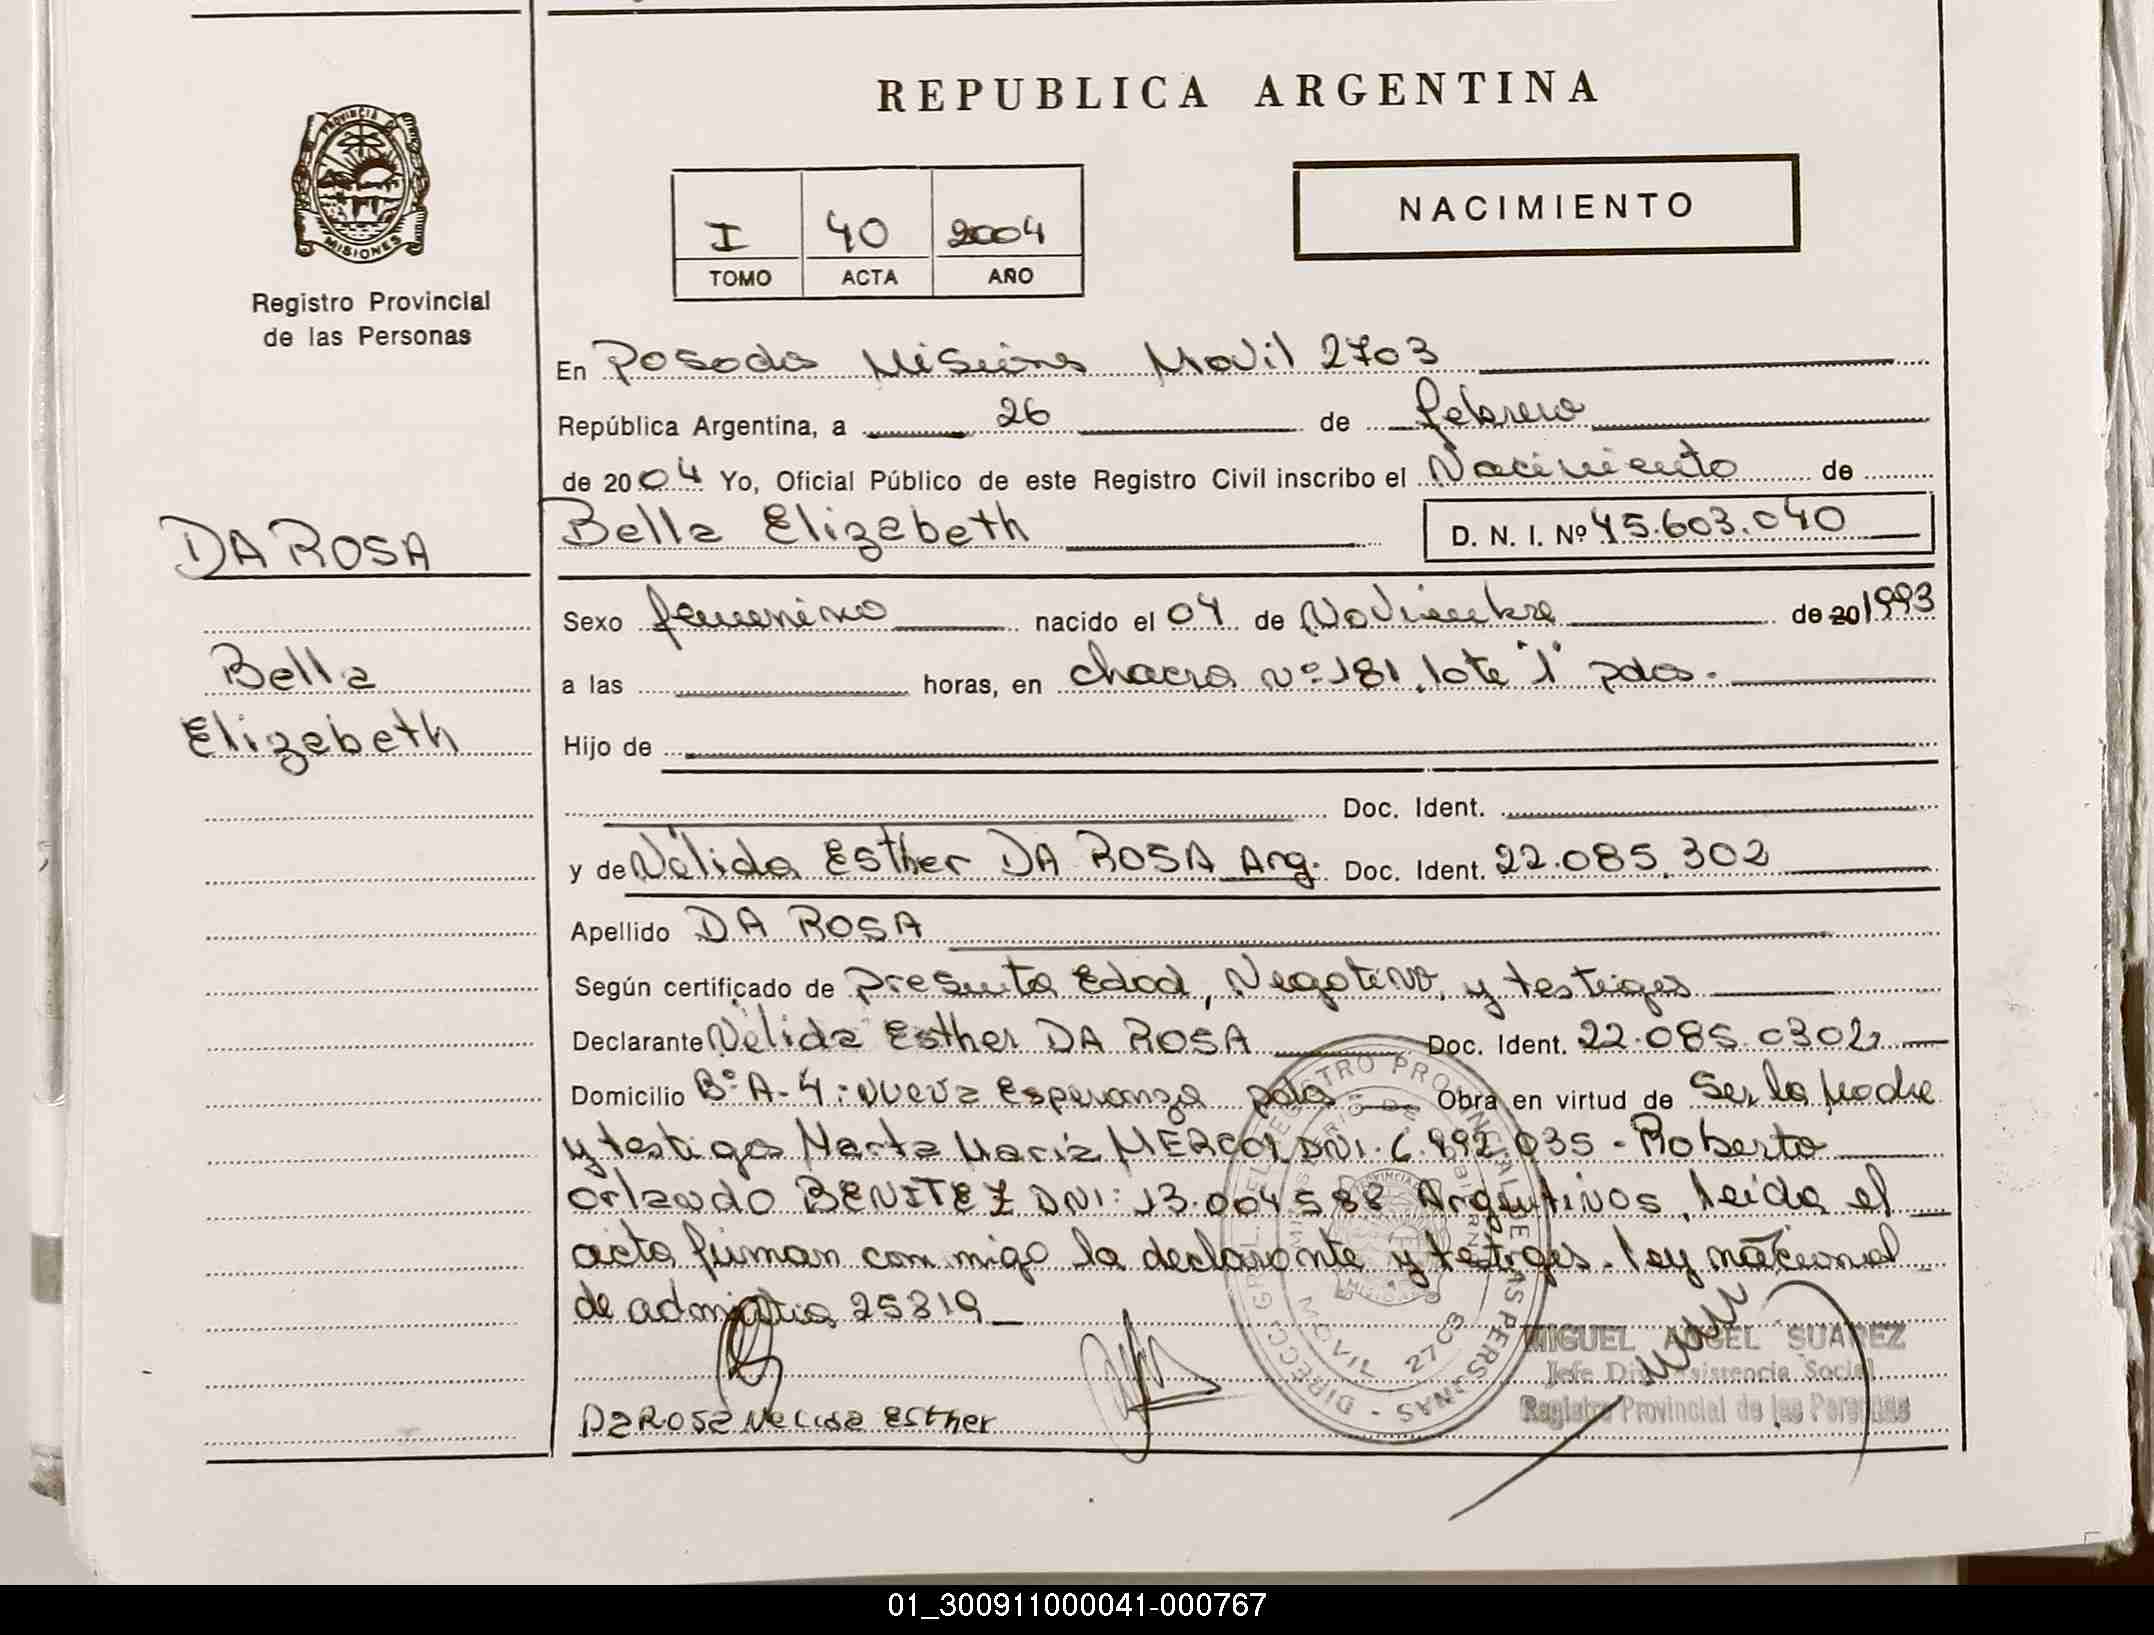 REPUBLICA ARGENTINA
PROVINCIA DE
MISIONES
Registro Provincial
de las Personas
I 40 2004
TOMO ACTA AÑO
NACIMIENTO
En Posadas Misiones Movil 2703
República Argentina, a 26 de febrero
de 2004 Yo, Oficial Público de este Registro Civil inscribo el Nacimiento de
DA ROSA
Bella
Elizabeth
Bella Elizabeth D. N. I. Nº 45.603.040
Sexo femenino nacido el 04 de Noviembre de 20 1993
a las horas, en chacra nº 181, lote "1" pdas.
Hijo de
Doc. Ident.
y de Nélida Esther DA ROSA Arg. Doc. Ident. 22.085.302
Apellido DA ROSA
Según certificado de Presunta Edad, Negativo, y testigos
Declarante Nélida Esther DA ROSA Doc. Ident. 22.085.0302
Domicilio Bº A-4: Nueva Esperanza pdas Obra en virtud de Ser la Madre
y testigos Marta María DNI. 6.892.035 - Roberto
Orlando BENITEZ DNI: 13.004.588 Argentinos, leída el
acta firman conmigo la declarante y testigos. ley nacional
de 25819
Da Rosa Nelida Esther
DIRECC. GRAL. DEL REGISTRO PROVINCIAL DE LAS PERSONAS
MOVIL 2703
MIGUEL ANGEL SUAREZ
Jefe Div. Asistencia Social
Registro Provincial de las Personas
01_300911000041-000767